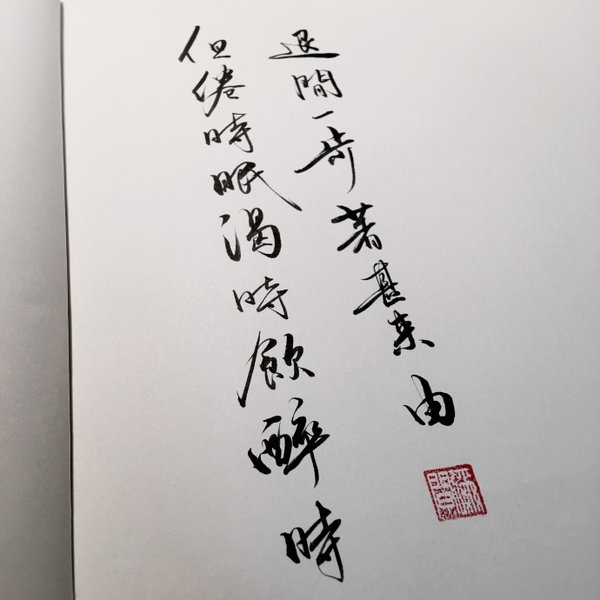 退間一步著甚來由
但倦時眠渴時飲醉時